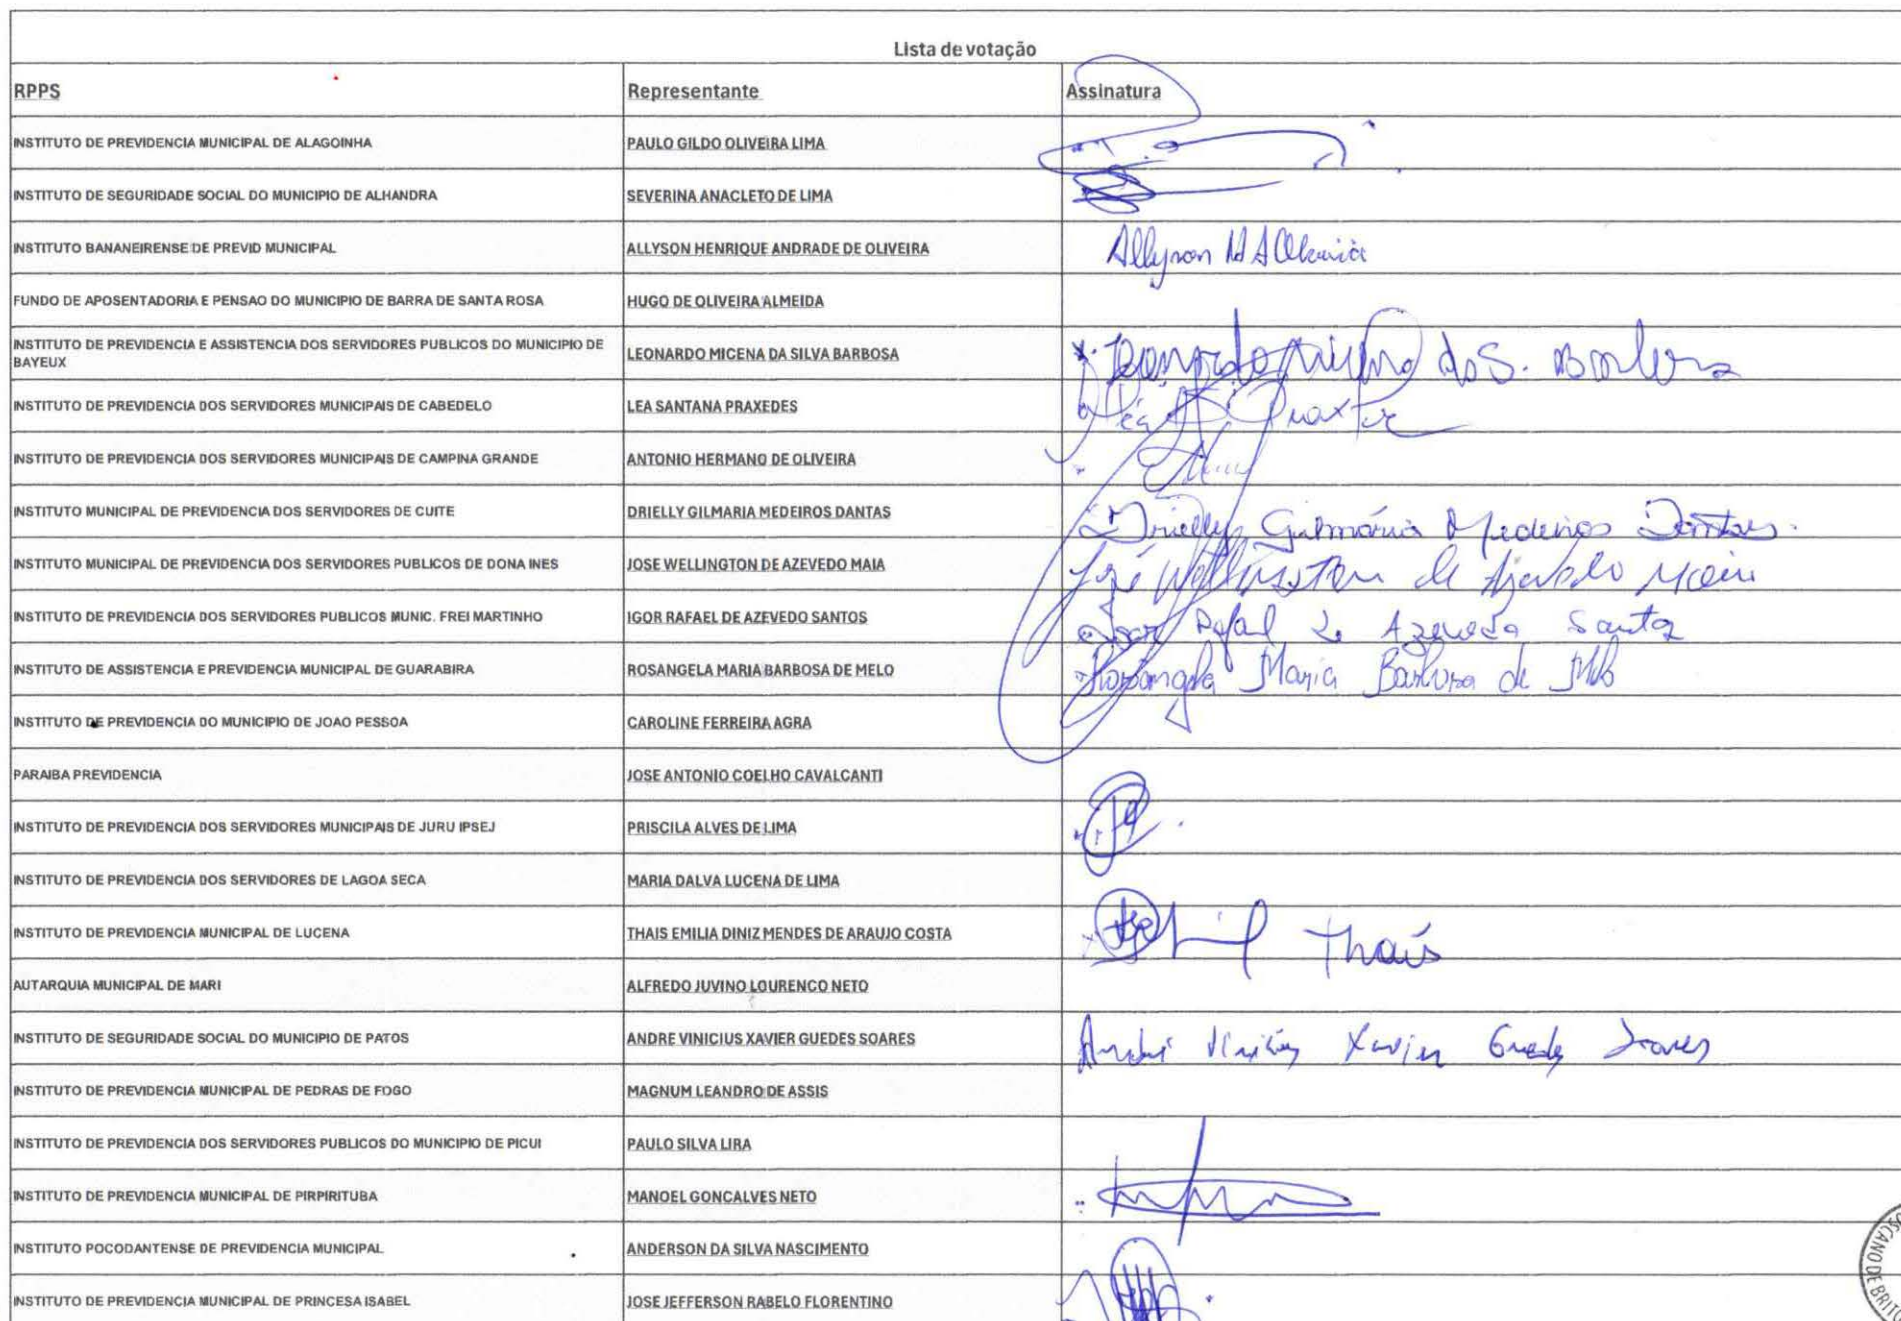 Lista de votação
RPPS Representante Assinatura
INSTITUTO DE PREVIDENCIA MUNICIPAL DE ALAGOINHA PAULO GILDO OLIVEIRA LIMA
INSTITUTO DE SEGURIDADE SOCIAL DO MUNICIPIO DE ALHANDRA SEVERINA ANACLETO DE LIMA
INSTITUTO BANANEIRENSE DE PREVID MUNICIPAL ALLYSON HENRIQUE ANDRADE DE OLIVEIRA Allyson H A Oliveira
FUNDO DE APOSENTADORIA E PENSAO DO MUNICIPIO DE BARRA DE SANTA ROSA HUGO DE OLIVEIRA ALMEIDA
INSTITUTO DE PREVIDENCIA E ASSISTENCIA DOS SERVIDORES PUBLICOS DO MUNICIPIO DE
BAYEUX LEONARDO MICENA DA SILVA BARBOSA Leonardo Micena da S. Barbosa
INSTITUTO DE PREVIDENCIA DOS SERVIDORES MUNICIPAIS DE CABEDELO LEA SANTANA PRAXEDES Léa
INSTITUTO DE PREVIDENCIA DOS SERVIDORES MUNICIPAIS DE CAMPINA GRANDE ANTONIO HERMANO DE OLIVEIRA
INSTITUTO MUNICIPAL DE PREVIDENCIA DOS SERVIDORES DE CUITE DRIELLY GILMARIA MEDEIROS DANTAS Drielly Gilmária Medeiros Dantas.
INSTITUTO MUNICIPAL DE PREVIDENCIA DOS SERVIDORES PUBLICOS DE DONA INES JOSE WELLINGTON DE AZEVEDO MAIA José Wellington de Azevedo Maia
INSTITUTO DE PREVIDENCIA DOS SERVIDORES PUBLICOS MUNIC. FREI MARTINHO IGOR RAFAEL DE AZEVEDO SANTOS Igor Rafael de Azevedo Santos
INSTITUTO DE ASSISTENCIA E PREVIDENCIA MUNICIPAL DE GUARABIRA ROSANGELA MARIA BARBOSA DE MELO Rosangela Maria Barbosa de Melo
INSTITUTO DE PREVIDENCIA DO MUNICIPIO DE JOAO PESSOA CAROLINE FERREIRA AGRA
PARAIBA PREVIDENCIA JOSE ANTONIO COELHO CAVALCANTI
INSTITUTO DE PREVIDENCIA DOS SERVIDORES MUNICIPAIS DE JURU IPSEJ PRISCILA ALVES DE LIMA
INSTITUTO DE PREVIDENCIA DOS SERVIDORES DE LAGOA SECA MARIA DALVA LUCENA DE LIMA
INSTITUTO DE PREVIDENCIA MUNICIPAL DE LUCENA THAIS EMILIA DINIZ MENDES DE ARAUJO COSTA Thaís
AUTARQUIA MUNICIPAL DE MARI ALFREDO JUVINO LOURENCO NETO
INSTITUTO DE SEGURIDADE SOCIAL DO MUNICIPIO DE PATOS ANDRE VINICIUS XAVIER GUEDES SOARES André Vinicius Xavier Guedes Soares
INSTITUTO DE PREVIDENCIA MUNICIPAL DE PEDRAS DE FOGO MAGNUM LEANDRO DE ASSIS
INSTITUTO DE PREVIDENCIA DOS SERVIDORES PUBLICOS DO MUNICIPIO DE PICUI PAULO SILVA LIRA
INSTITUTO DE PREVIDENCIA MUNICIPAL DE PIRPIRITUBA MANOEL GONCALVES NETO
INSTITUTO POCODANTENSE DE PREVIDENCIA MUNICIPAL ANDERSON DA SILVA NASCIMENTO
INSTITUTO DE PREVIDENCIA MUNICIPAL DE PRINCESA ISABEL JOSE JEFFERSON RABELO FLORENTINO